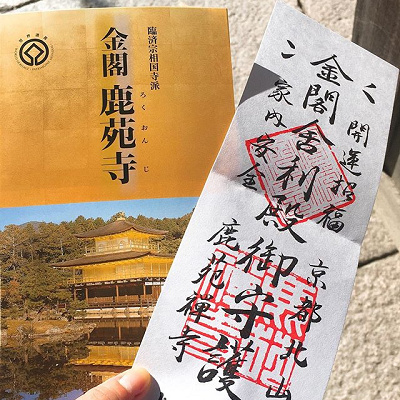 臨済宗相国寺派
金閣 鹿苑寺
ろくおんじ
開運招福
金閣舎利殿御守護
家内安全
京都北山
鹿苑禅寺